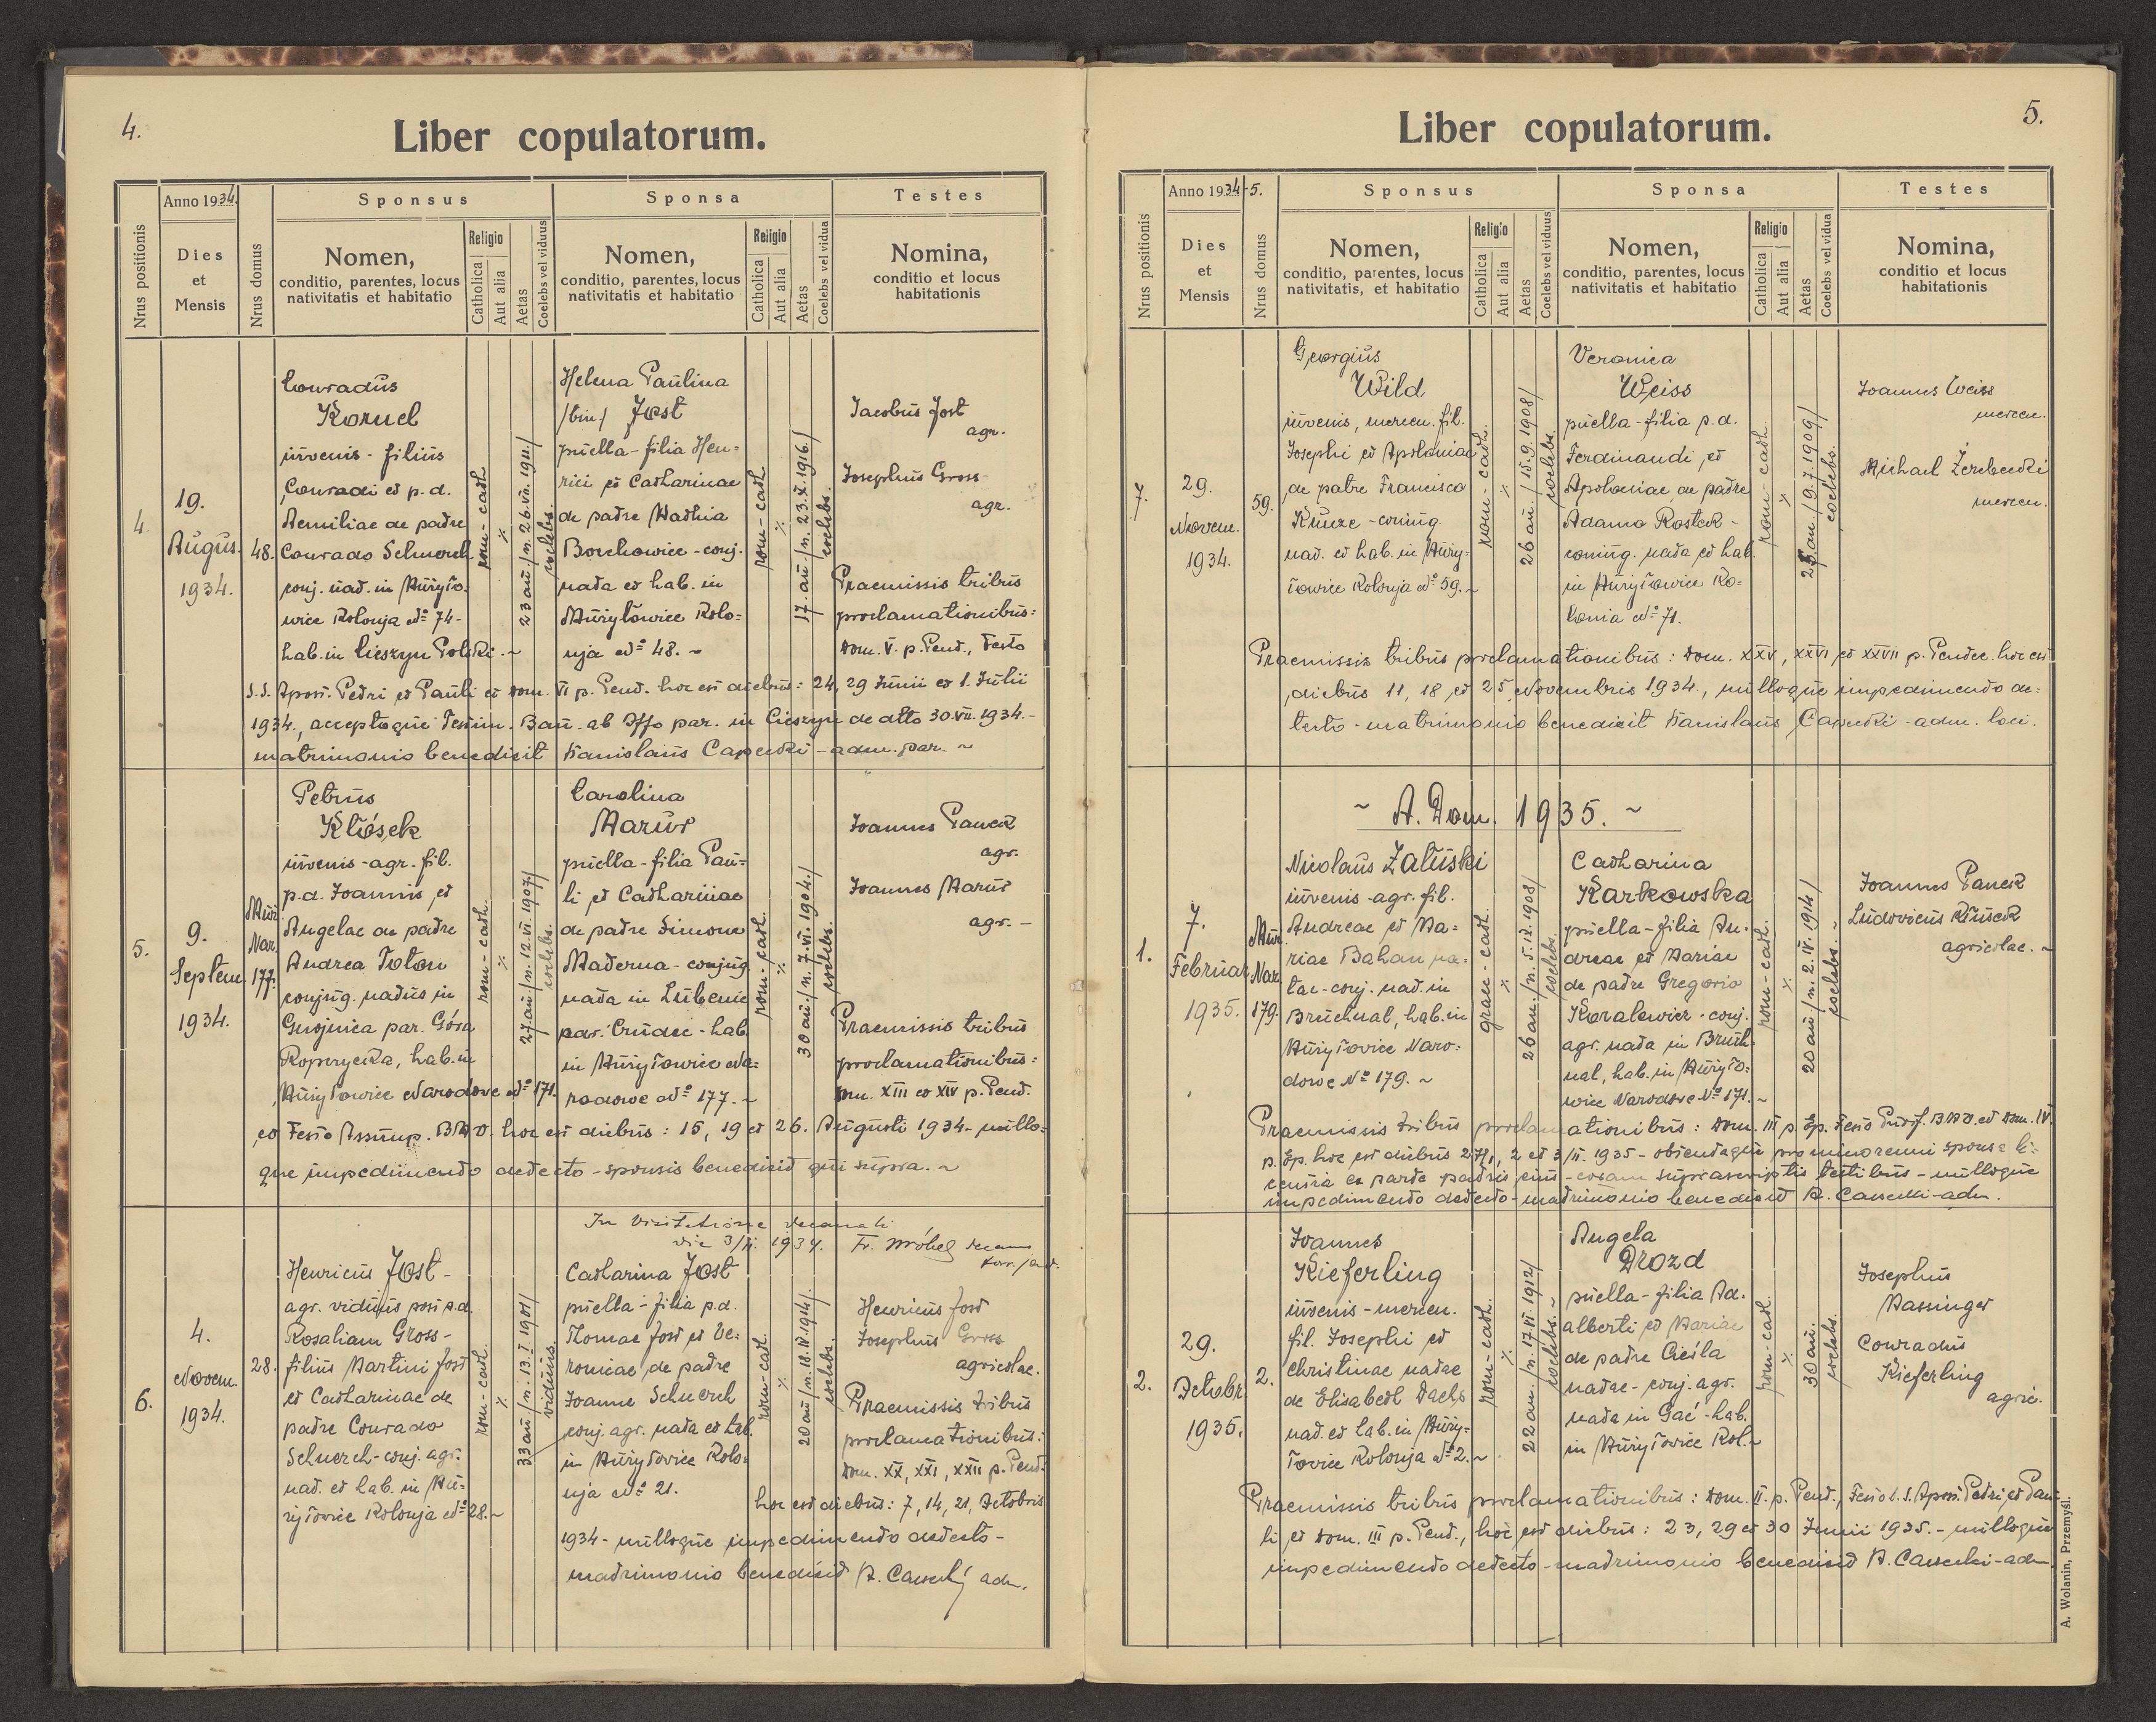 4.
Liber copulatorum.
Anno 1934.
Sponsus
Sponsa
Testes
Nrus positionis
Dies
et
Mensis
Nrus domus
Nomen,
conditio, parentes, locus
nativitatis et habitatio
Religio
Catholica
Aut alia
Aetas
Coelebs vel viduus
Nomen,
conditio, parentes, locus
nativitatis et habitatio
Religio
Catholica
Aut alia
Aetas
Coelebs vel vidua
Nomina,
conditio et locus
habitationis
4.
19.
Augus.
1934.
48.
Conradus
Kornel
iuvenis - filius
Conradi et p.d.
Aemiliae de patre
Conrado Schmerch
conj. nat. in Muryło-
wice Kolonja No 74-
hab. in Cieszyn Polski. ~
rom-cath
%
23 an. /n. 26.VII. 1911./
coelebs.
Helena Paulina
/bin./ Jost
puella - filia Hen=
rici et Catharinae
de patre Mathia
Borchowicz - conj.
nata et hab. in
Muryłowice Kolo=
nja No 48. ~
rom-cath
%
17. an. /n. 23.X.1916./
coelebs.
Jacobus Jost
agr.
Josephus Gross
agr.
Praemissis tribus
proclamationibus:
Dom. V. p. Pent., Festo
S.S. Apost. Petri et Pauli et Dom. VI p. Pent. hoc est diebus: 24, 29 Junii et 1. Julii
1934., acceptoque Testim. Ban. ab Offo par. in Cieszyn de dtto 30.VII.1934.-
matrimonio benedixit Stanislaus - adm. par. ~
5.
9.
Septem.
1934.
Mur.
Nar.
177.
Petrus
Kłósek
iuvenis - agr. fil.
p.d. Joannis et
Angelae de patre
Andrea Toton
conjug. natus in
Gnojnica par. Góra
Ropczycka, hab. in
Muryłowice Narodowe No 171.
rom-cath.
%
27. an. /n. 12.VI.1907/
coelebs.
Carolina
Marut
puella - filia Pau=
li et Catharinae
de patre Simone
Materna - conjug.
nata in Lubenia
par. - hab.
in Muryłowice Na=
rodowe No 177. ~
rom-cath.
%
30 an. /n. 7.VI.1904./
coelebs.
Joannes Panek
agr.
Joannes Marut
agr. -
Praemissis tribus
proclamationibus:
Dom. XIII et XIV p. Pent.
et Festo Assump. BMV. hoc est diebus: 15, 19 et 26. Augusti 1934 - nullo=
que impedimento detecto - sponsis benedixit qui supra. ~
In visitatione decanali
die 3/XI. 1934. Fr. Wróbel decanus
6.
4.
Novem.
1934.
28.
Henricus Jost -
agr. viduus post p.d.
Rosaliam Gross -
filius Martini Jost
et Catharinae de
patre Conrado
Schmerch - conj. agr.
nat. et hab. in Mu=
ryłowice Kolonja No 28. ~
rom-cath.
%
33 an /n. 13.I.1901/
viduus.
Catharina Jost
puella - filia p.d.
Thomae Jost et Ve=
ronicae, de patre
Joanne Schmerch
conj. agr. nata et hab.
in Muryłowice Kolo=
nja No 21.
rom-cat.
%
20 an /n. 18.IV.1914/.
coelebs.
Henricus Jost
Josephus Gross
agricolae.
Praemissis tribus
proclamationibus:
Dom. XX, XXI, XXII p. Pent.
hoc est diebus: 7, 14, 21, Octobris
1934 - nulloque impedimento detecto -
matrimonio benedixit adm.
5.
Liber copulatorum.
Anno 1934-5.
Sponsus
Sponsa
Testes
Nrus positionis
Dies
et
Mensis
Nrus domus
Nomen,
conditio, parentes, locus
nativitatis, et habitatio
Religio
Catholica
Aut alia
Aetas
Coelebs vel viduus
Nomen,
conditio, parentes, locus
nativitatis et habitatio
Religio
Catholica
Aut alia
Aetas
Coelebs vel vidua
Nomina,
conditio et locus
habitationis
7.
29.
Novem.
1934.
59.
Georgius
Wild
iuvenis, mercen. fil.
Josephi et Apoloniae
de patre Francisco
Kunze - coniug.
nat. et hab. in Mury-
łowice Kolonja No 59. ~
rom-cath.
%
26 an. /15.9.1908/
coelebs.
Veronica
Weiss
puella - filia p.d.
Ferdinandi et
Apoloniae de patre
Adamo Rostek -
coniug. nata et hab.
in Muryłowice Ko=
lonia No 71.
rom-cath.
%
25 an. /9.7.1909/
coelebs.
Joannes Weiss
mercen.
Michael
mercen.
Praemissis tribus proclamationibus: Dom. XXV, XXVI et XXVII p. Pentec. hoc est
diebus 11, 18 et 25 Novembris 1934., nulloque impedimento de=
tecto - matrimonio benedixit Stanislaus - adm. loci.
~ A. Dom. 1935. ~
1.
7.
Februar
1935.
Mur.
Nar
179.
Nicolaus Załuski
iuvenis - agr. fil.
Andreae et Ma=
riae Bahan na=
tae - conj. nat. in
Bruchnal, hab. in
Muryłowice Naro=
dowe No 179. ~
graec-cath.
%
26 an. /n. 5.IX.1908/
coelebs.
Catharina
Karkowska
puella - filia An=
dreae et Mariae
de patre Gregorio
Koralewicz - conj.
agr. nata in Bruch-
nal, hab. in Muryło=
wice Narodowe No 171. ~
rom-cath.
%
20 an /n. 2.IV.1914/
coelebs. ~
Joannes Panek
Ludovicus Kłusek
agricolae. ~
Praemissis tribus proclamationibus: Dom. III p. Ep. Festo Purif. BMV. et Dom. IV
p. Ep. hoc est diebus 27/I, 2 et 3/II. 1935 - obtentaque pro minorenni sponsa li=
centia ex parte patris eius - coram suprascriptis testibus - nulloque
impedimento detecto - matrimonio benedixit adm.
2.
29.
Octobr.
1935.
2.
Joannes
Kieferling
iuvenis - mercen.
fil. Josephi et
Christinae natae
de Elisabeth Dachs
nat. et hab. in Mury=
łowice Kolonja No 2. ~
rom-cath.
%
22 an. /n. 17.VI.1912/
coelebs. ~
Angela
Drozd
puella - filia Ad.
alberti et Mariae
de patre Cieśla
natae - conj. agr.
nata in Gać - hab.
in Muryłowice Kol. ~
rom-cath.
%
30 an.
coelebs.
Josephus
Massinger
Conradus
Kieferling
agric.
Praemissis tribus proclamationibus: Dom. II. p. Pent., Festo S.S. Apost. Petri et Pau=
li et Dom. III p. Pent., hoc est diebus: 23, 29 et 30 Junii 1935. - nulloque
impedimento detecto - matrimonio benedixit adm.
A. Wolanin, Przemyśl.